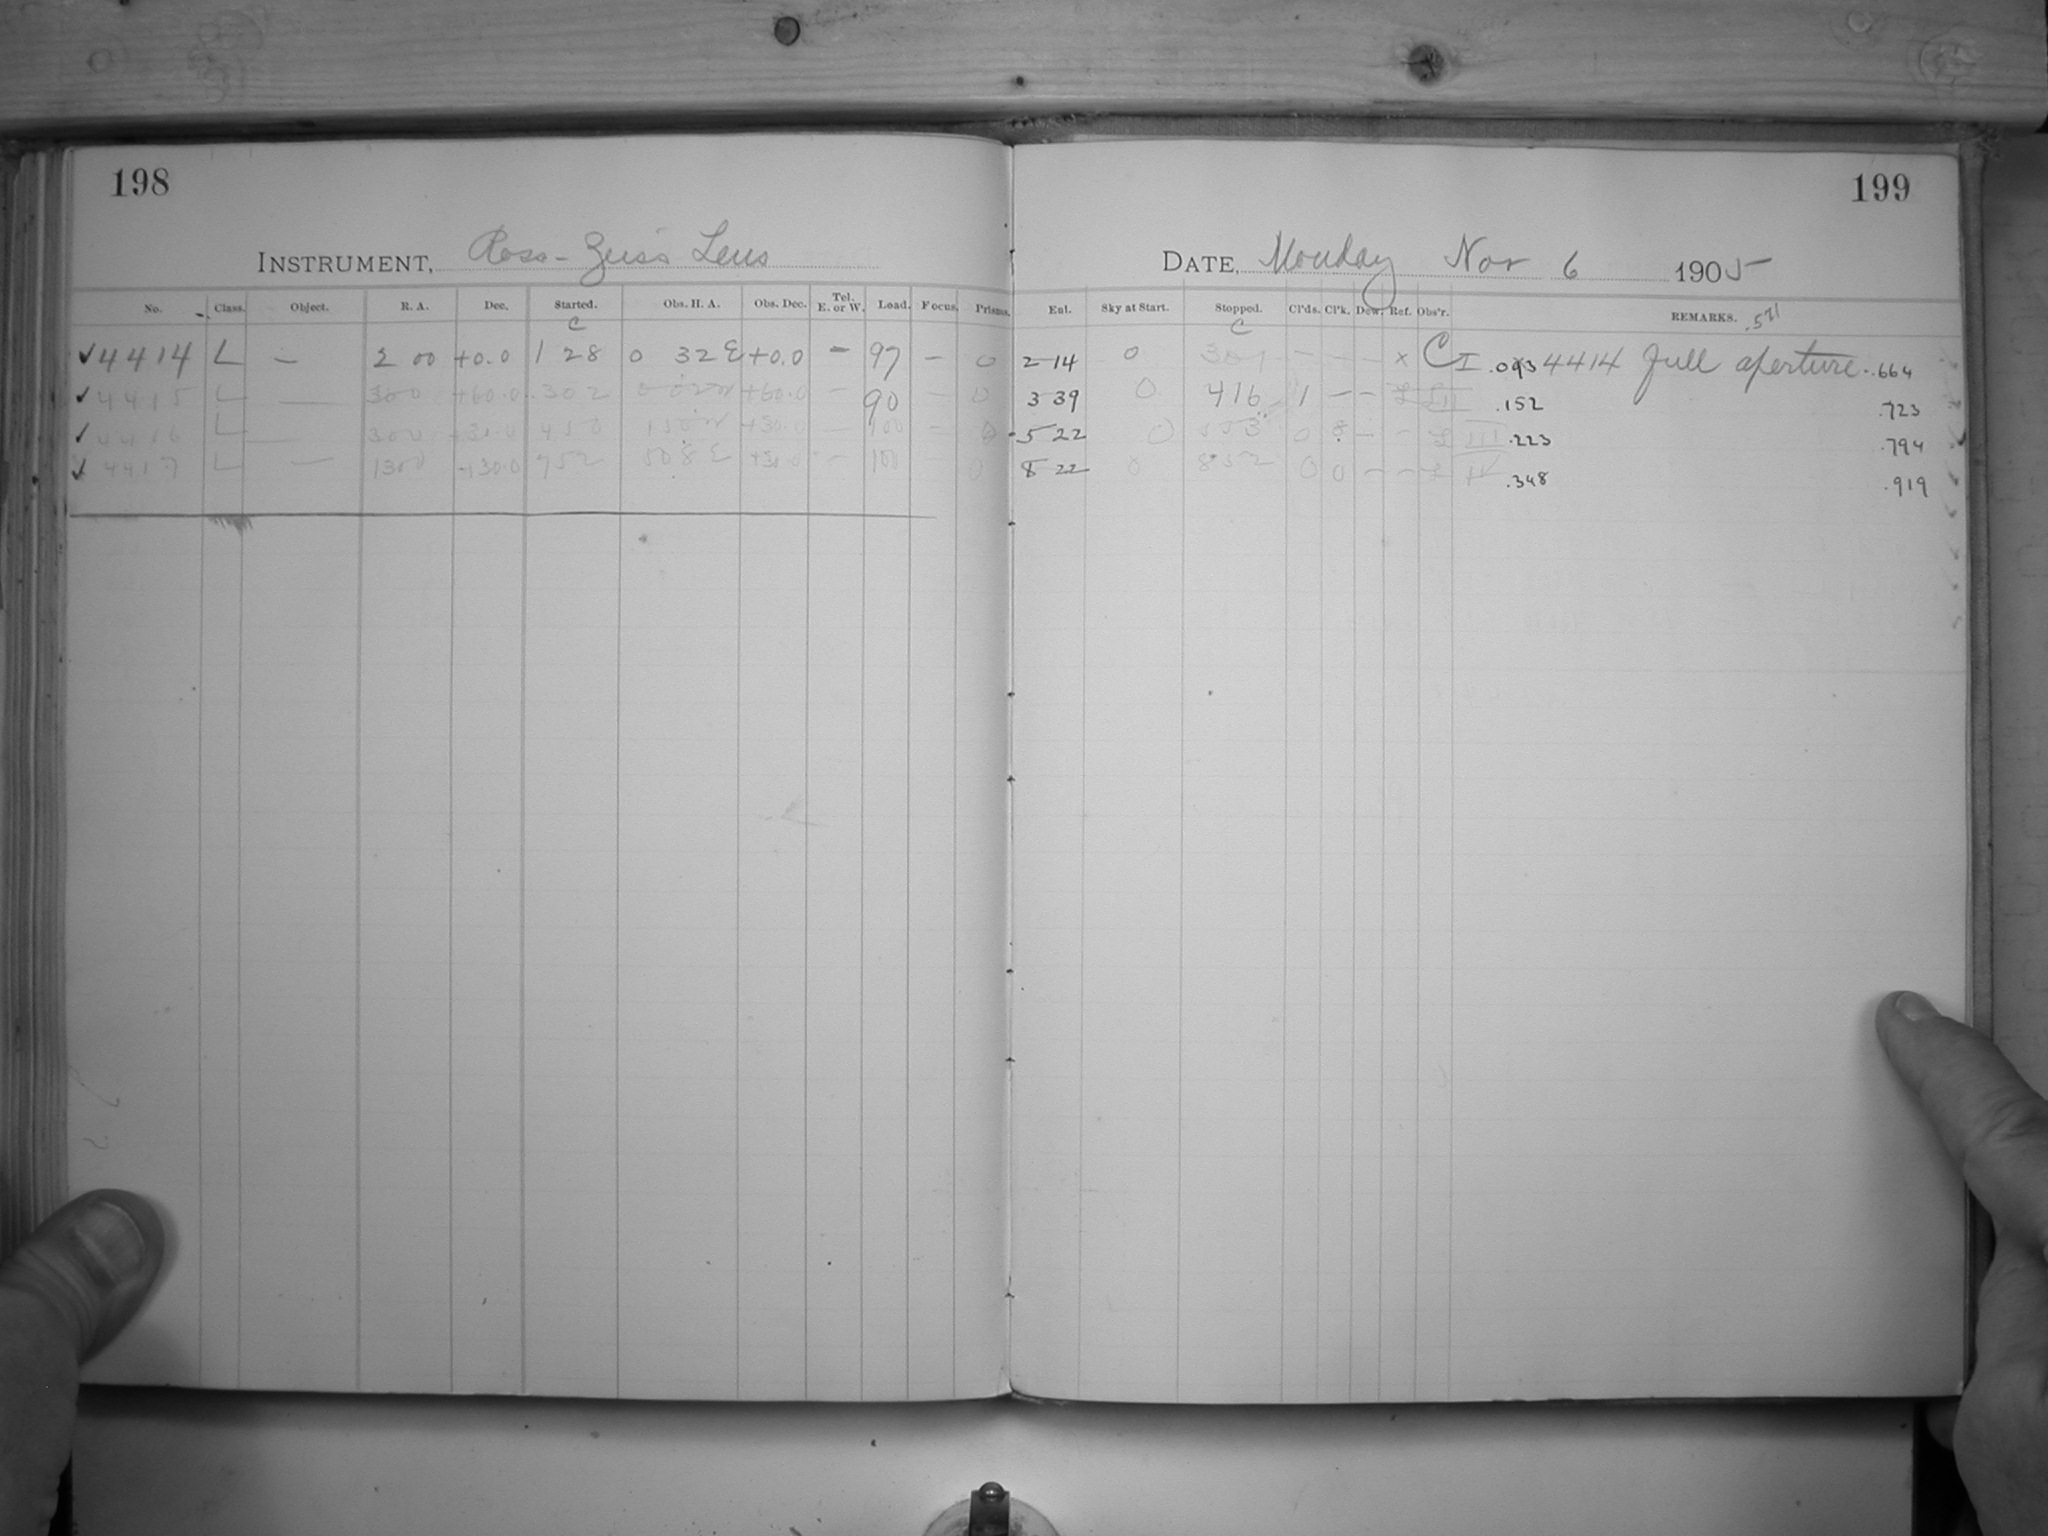 198
199
INSTRUMENT, Ross-Zeiss Lens
DATE, Monday Nov 6 1905
No. Class. Object. R. A. Dec. Started. Obs. H. A. Obs. Dec. Tel. E. or W. Load. Focus. Prisms. Eul. Sky at Start. Stopped. Cl'ds. Cl'k. Dew. Ref. Obs'r. REMARKS. .571
C C
✓ 4414 L — 2 00 +0.0 1 28 0 32 E +0.0 - 97 - 0 2 14 0 301 - - - x C I .093 4414 Full aperture .664
✓ 4415 L — 300 +60.0 302 0 02 W +60.0 - 90 - 0 3 39 0 416 1 - - II .152 .723
✓ 4416 L 300 +30.0 450 150 W +30.0 - 100 - 0 5 22 0 553 0 8 - - III .223 .794
✓ 4417 L — 1300 +30.0 752 508 E +30.0 - 100 0 8 22 0 852 0 0 - - IV .348 .919